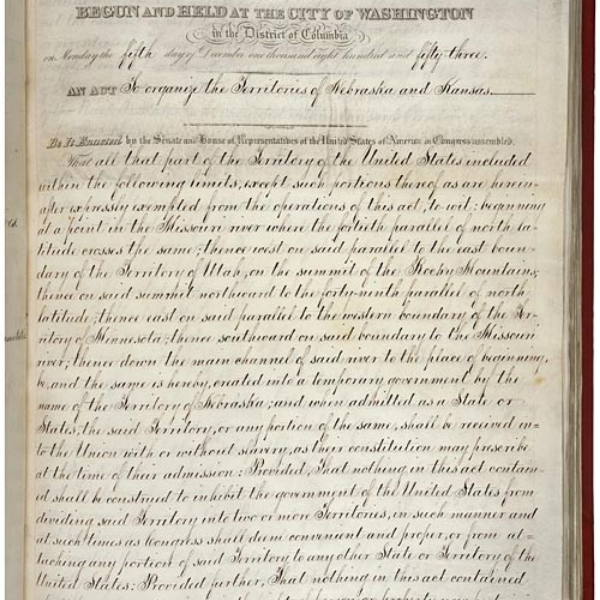 BEGUN AND HELD AT THE CITY OF WASHINGTON
in the District of Columbia
on Monday the fifth day of December one thousand eight hundred and fifty-three.
AN ACT To organize the Territories of Nebraska and Kansas.
Be It Enacted by the Senate and House of Representatives of the United States of America in Congress assembled,
That all that part of the Territory of the United States included
within the following limits, except such portions thereof as are herein-
after expressly exempted from the operations of this act, to wit: beginning
at a point in the Missouri river where the fortieth parallel of north la-
titude crosses the same; thence west on said parallel to the east boun-
dary of the Territory of Utah, on the summit of the Rocky Mountains;
thence on said summit northward to the forty-ninth parallel of north
latitude; thence east on said parallel to the western boundary of the Ter-
ritory of Minnesota; thence southward on said boundary to the Missouri
river; thence down the main channel of said river to the place of beginning,
be, and the same is hereby, created into a temporary government by the
name of the Territory of Nebraska; and when admitted as a State or
States, the said Territory, or any portion of the same, shall be received in-
to the Union with or without slavery, as their constitution may prescribe
at the time of their admission: Provided, That nothing in this act contain-
ed shall be construed to inhibit the government of the United States from
dividing said Territory into two or more Territories, in such manner and
at such times as Congress shall deem convenient and proper, or from at-
taching any portion of said Territory to any other State or Territory of the
United States: Provided further, That nothing in this act contained